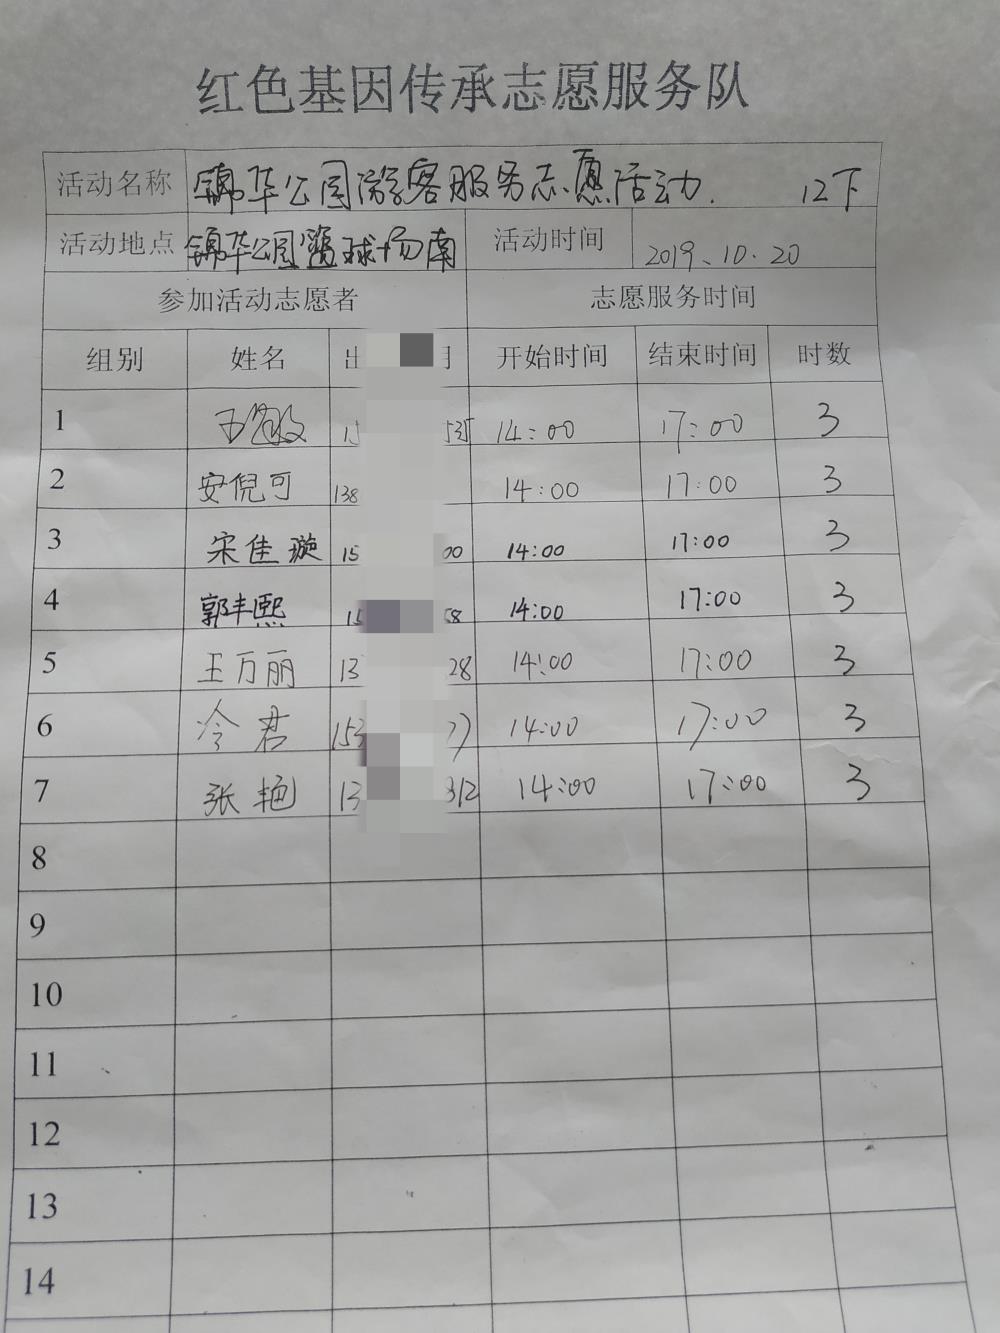 红色基因传承志愿服务队
活动名称 锦华公园游客服务志愿活动. 12下
活动地点 锦华公园篮球场南 活动时间 2019.10.20
参加活动志愿者 志愿服务时间
组别 姓名 出 期 开始时间 结束时间 时数
1 15 535 14:00 17:00 3
2 安倪可 138 14:00 17:00 3
3 宋佳璇 15 00 14:00 17:00 3
4 郭丰熙 15 58 14:00 17:00 3
5 王万丽 13 28 14:00 17:00 3
6 冷君 153 77 14:00 17:00 3
7 张艳 13 312 14:00 17:00 3
8
9
10
11
12
13
14